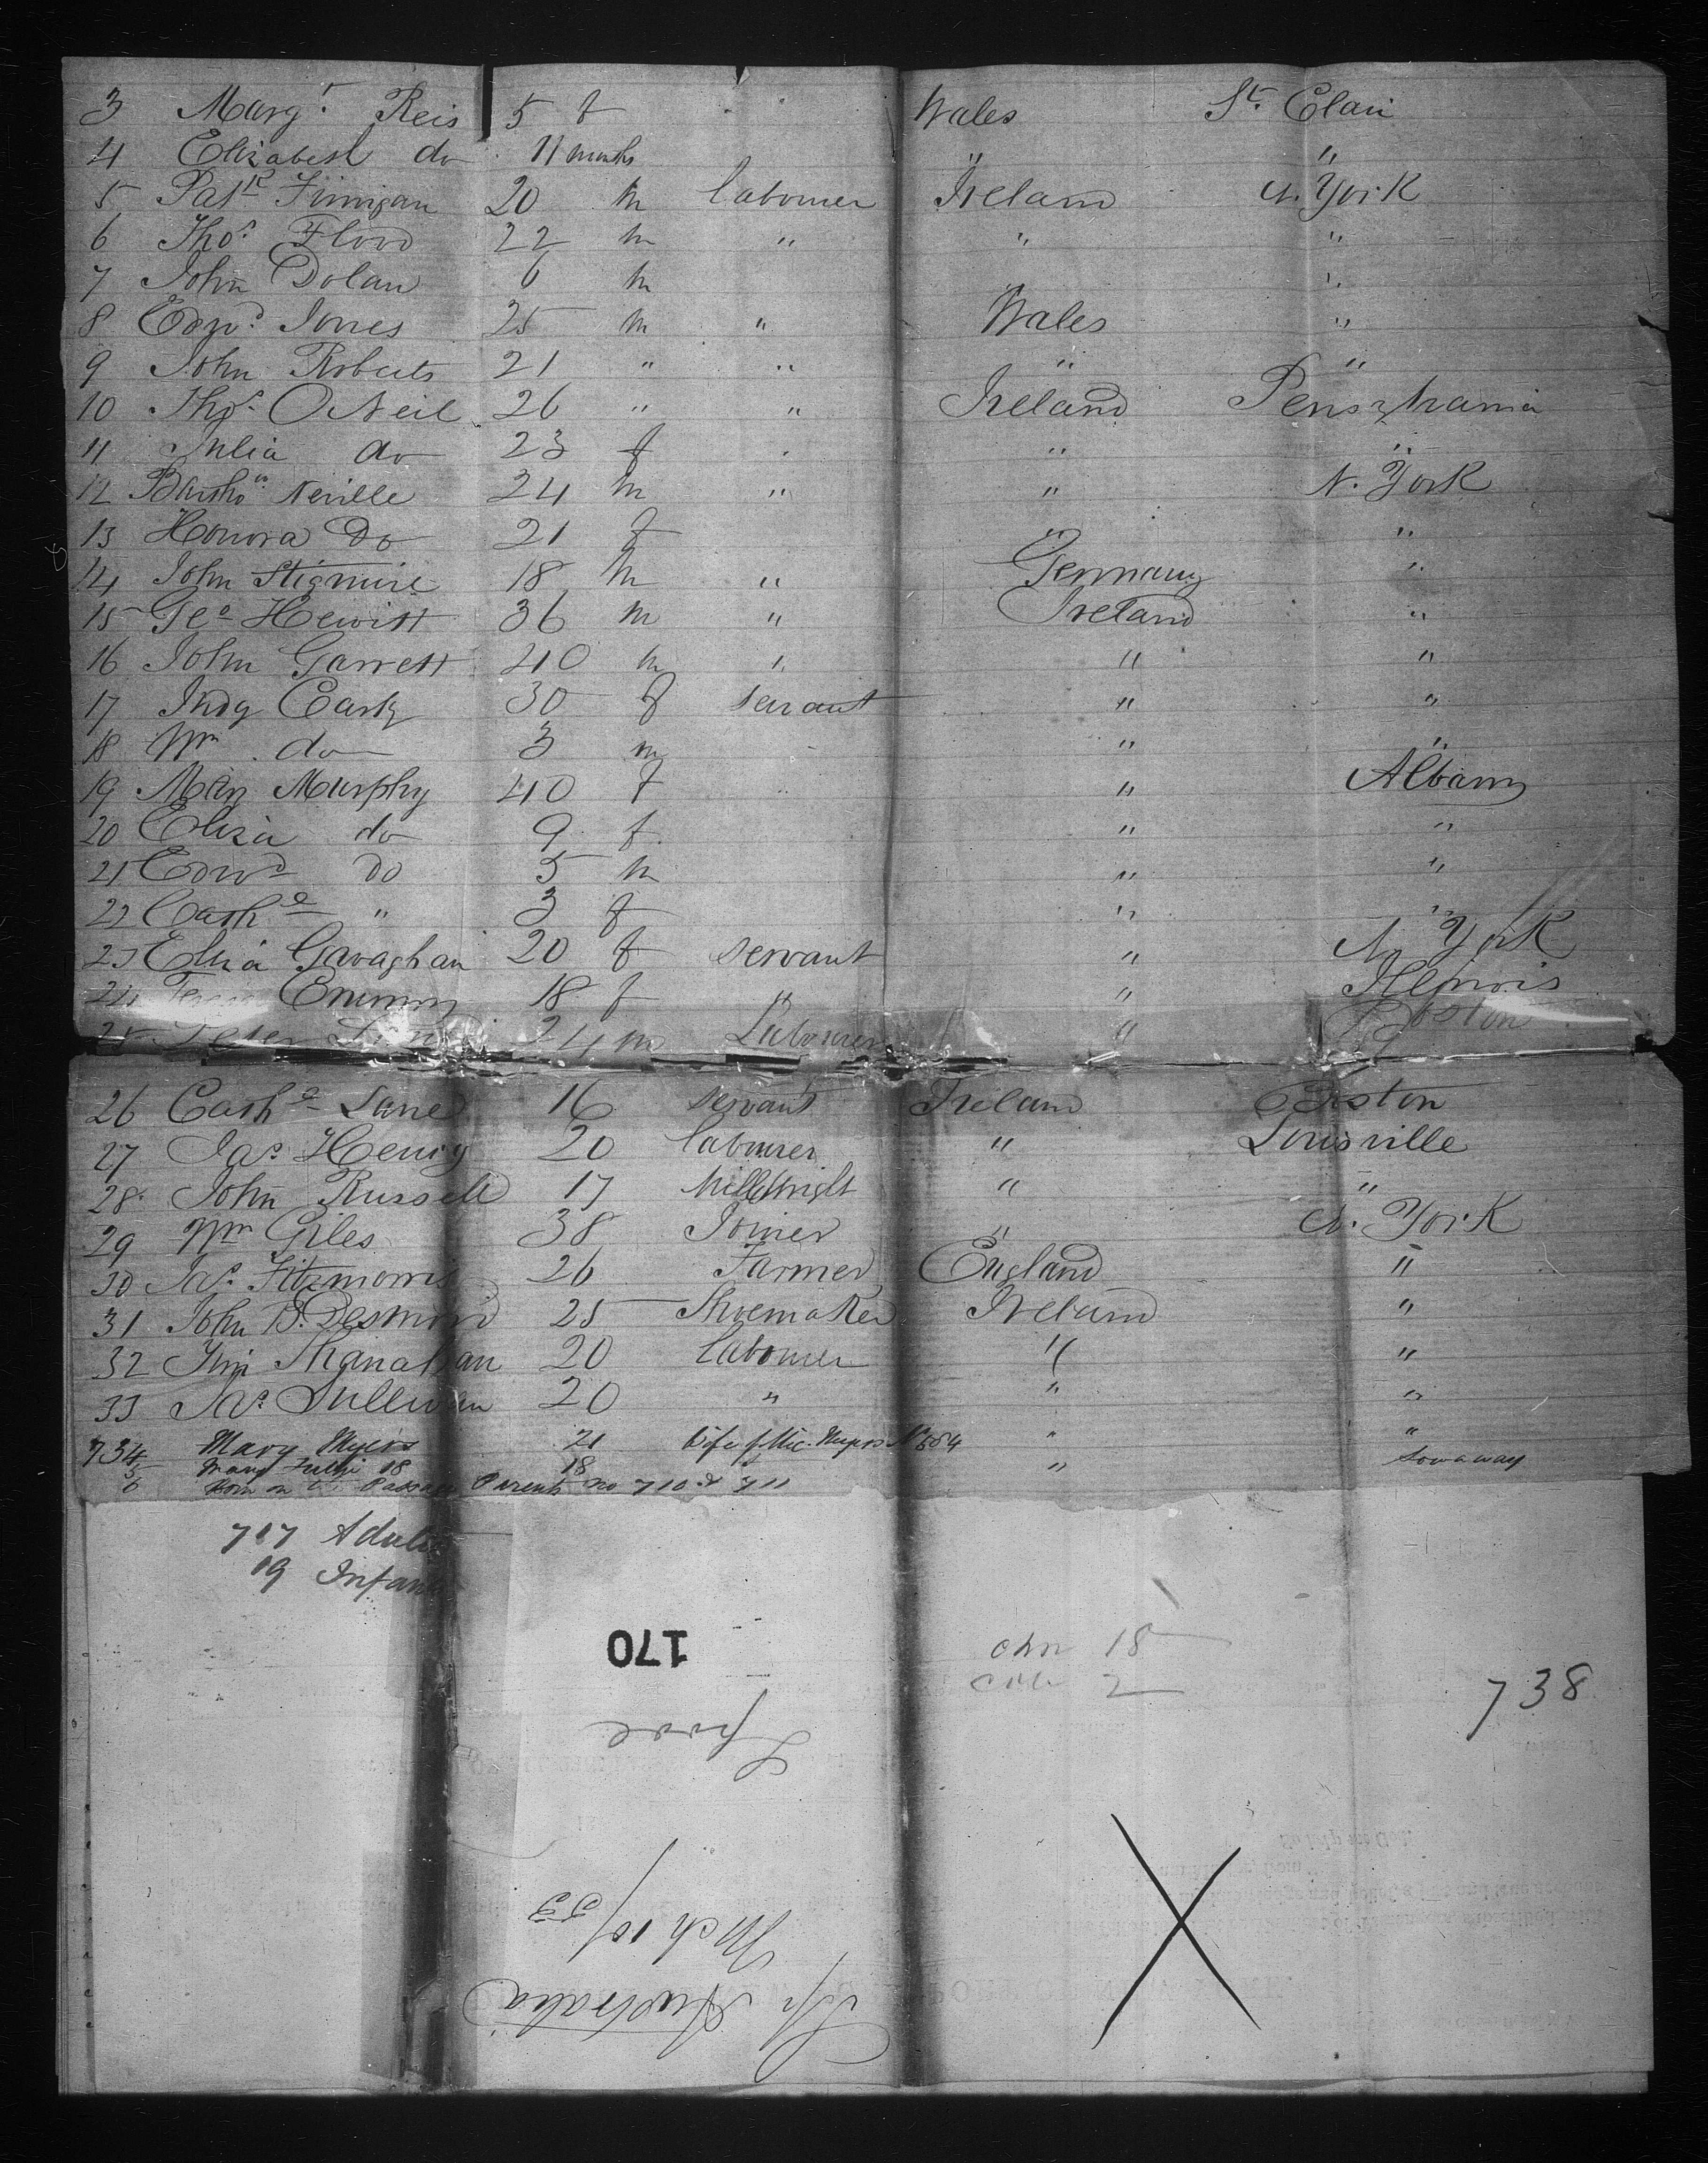 3 Margt. Reis 5 f " Wales St. Clair
4 Elizabeth do 11 months " "
5 Patk Finnigan 20 m labourer Ireland N. York
6 Thos. Flood 22 m " " "
7 John Dolan 6 m "
8 Edwd. Jones 25 m " Wales "
9 John Roberts 21 " " " "
10 Thos. O Neil 26 " " Ireland Pensylvania
11 Julia do 23 f " "
12 Bartho Neville 24 m " " N. York
13 Honora Do 21 f " "
14 John Stigmire 18 m " Germany "
15 Geo Hewitt 36 m " Ireland "
16 John Garrett 40 m " " "
17 Judy Early 30 f servant " "
18 Wm do 3 m " "
19 Mary Murphy 40 f " Albany
20 Eliza do 9 f " "
21 Edwd do 5 m " "
22 Cathe " 3 f " "
23 Eliza Gavaghan 20 f servant " N York
24 18 f " " Illinois
25 Peter 24 m Labourer " Boston
26 Cathe Lane 16 servant Ireland Boston
27 Jas. Henry 20 labourer " Louisville
28 John Russell 17 Millwright " "
29 Wm Giles 38 Joiner " N. York
30 Jas. Fitzmorris 26 Farmer England "
31 John B. Desmond 25 Shoemaker Ireland "
32 Tim Shanahan 20 labourer " "
33 Jas. Sullivan 20 " " "
734 Mary Myers 21 Wife of Mic. Myers No 684 " "
5 Mary 18 18 " Sowaway
6 Born on Passage Parents no 710 & 711
717 Adults
19 Infants
170
chn 15
2
738
Lpool
Mch 10/53
Shp Australia